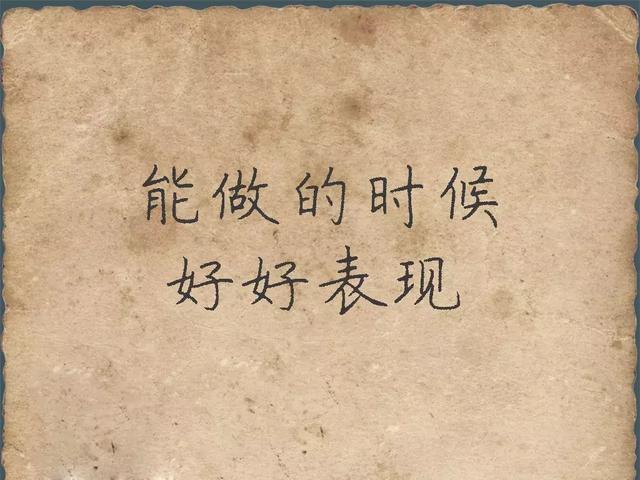 能做的时候
好好表现